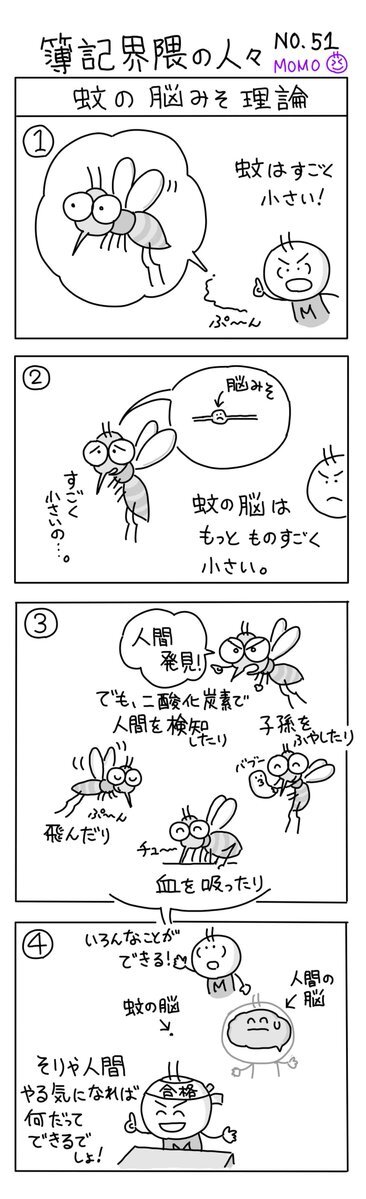 簿記界隈の人々 NO.51
MOMO
蚊の脳みそ理論
①
蚊はすごく
小さい!
M
ぷ〜〜ん
②
脳みそ
すごく
小さいの…。
蚊の脳は
もっと ものすごく
小さい。
③
人間
発見!
でも、二酸化炭素で
人間を検知
したり
子孫を
ふやしたり
バブー
ぷ〜ん
飛んだり
チュー
血を吸ったり
④
いろんなことが
できる!
M
人間の
脳
蚊の脳
そりゃ人間
やる気になれば
何だって
できるで
しょ!
合格
M